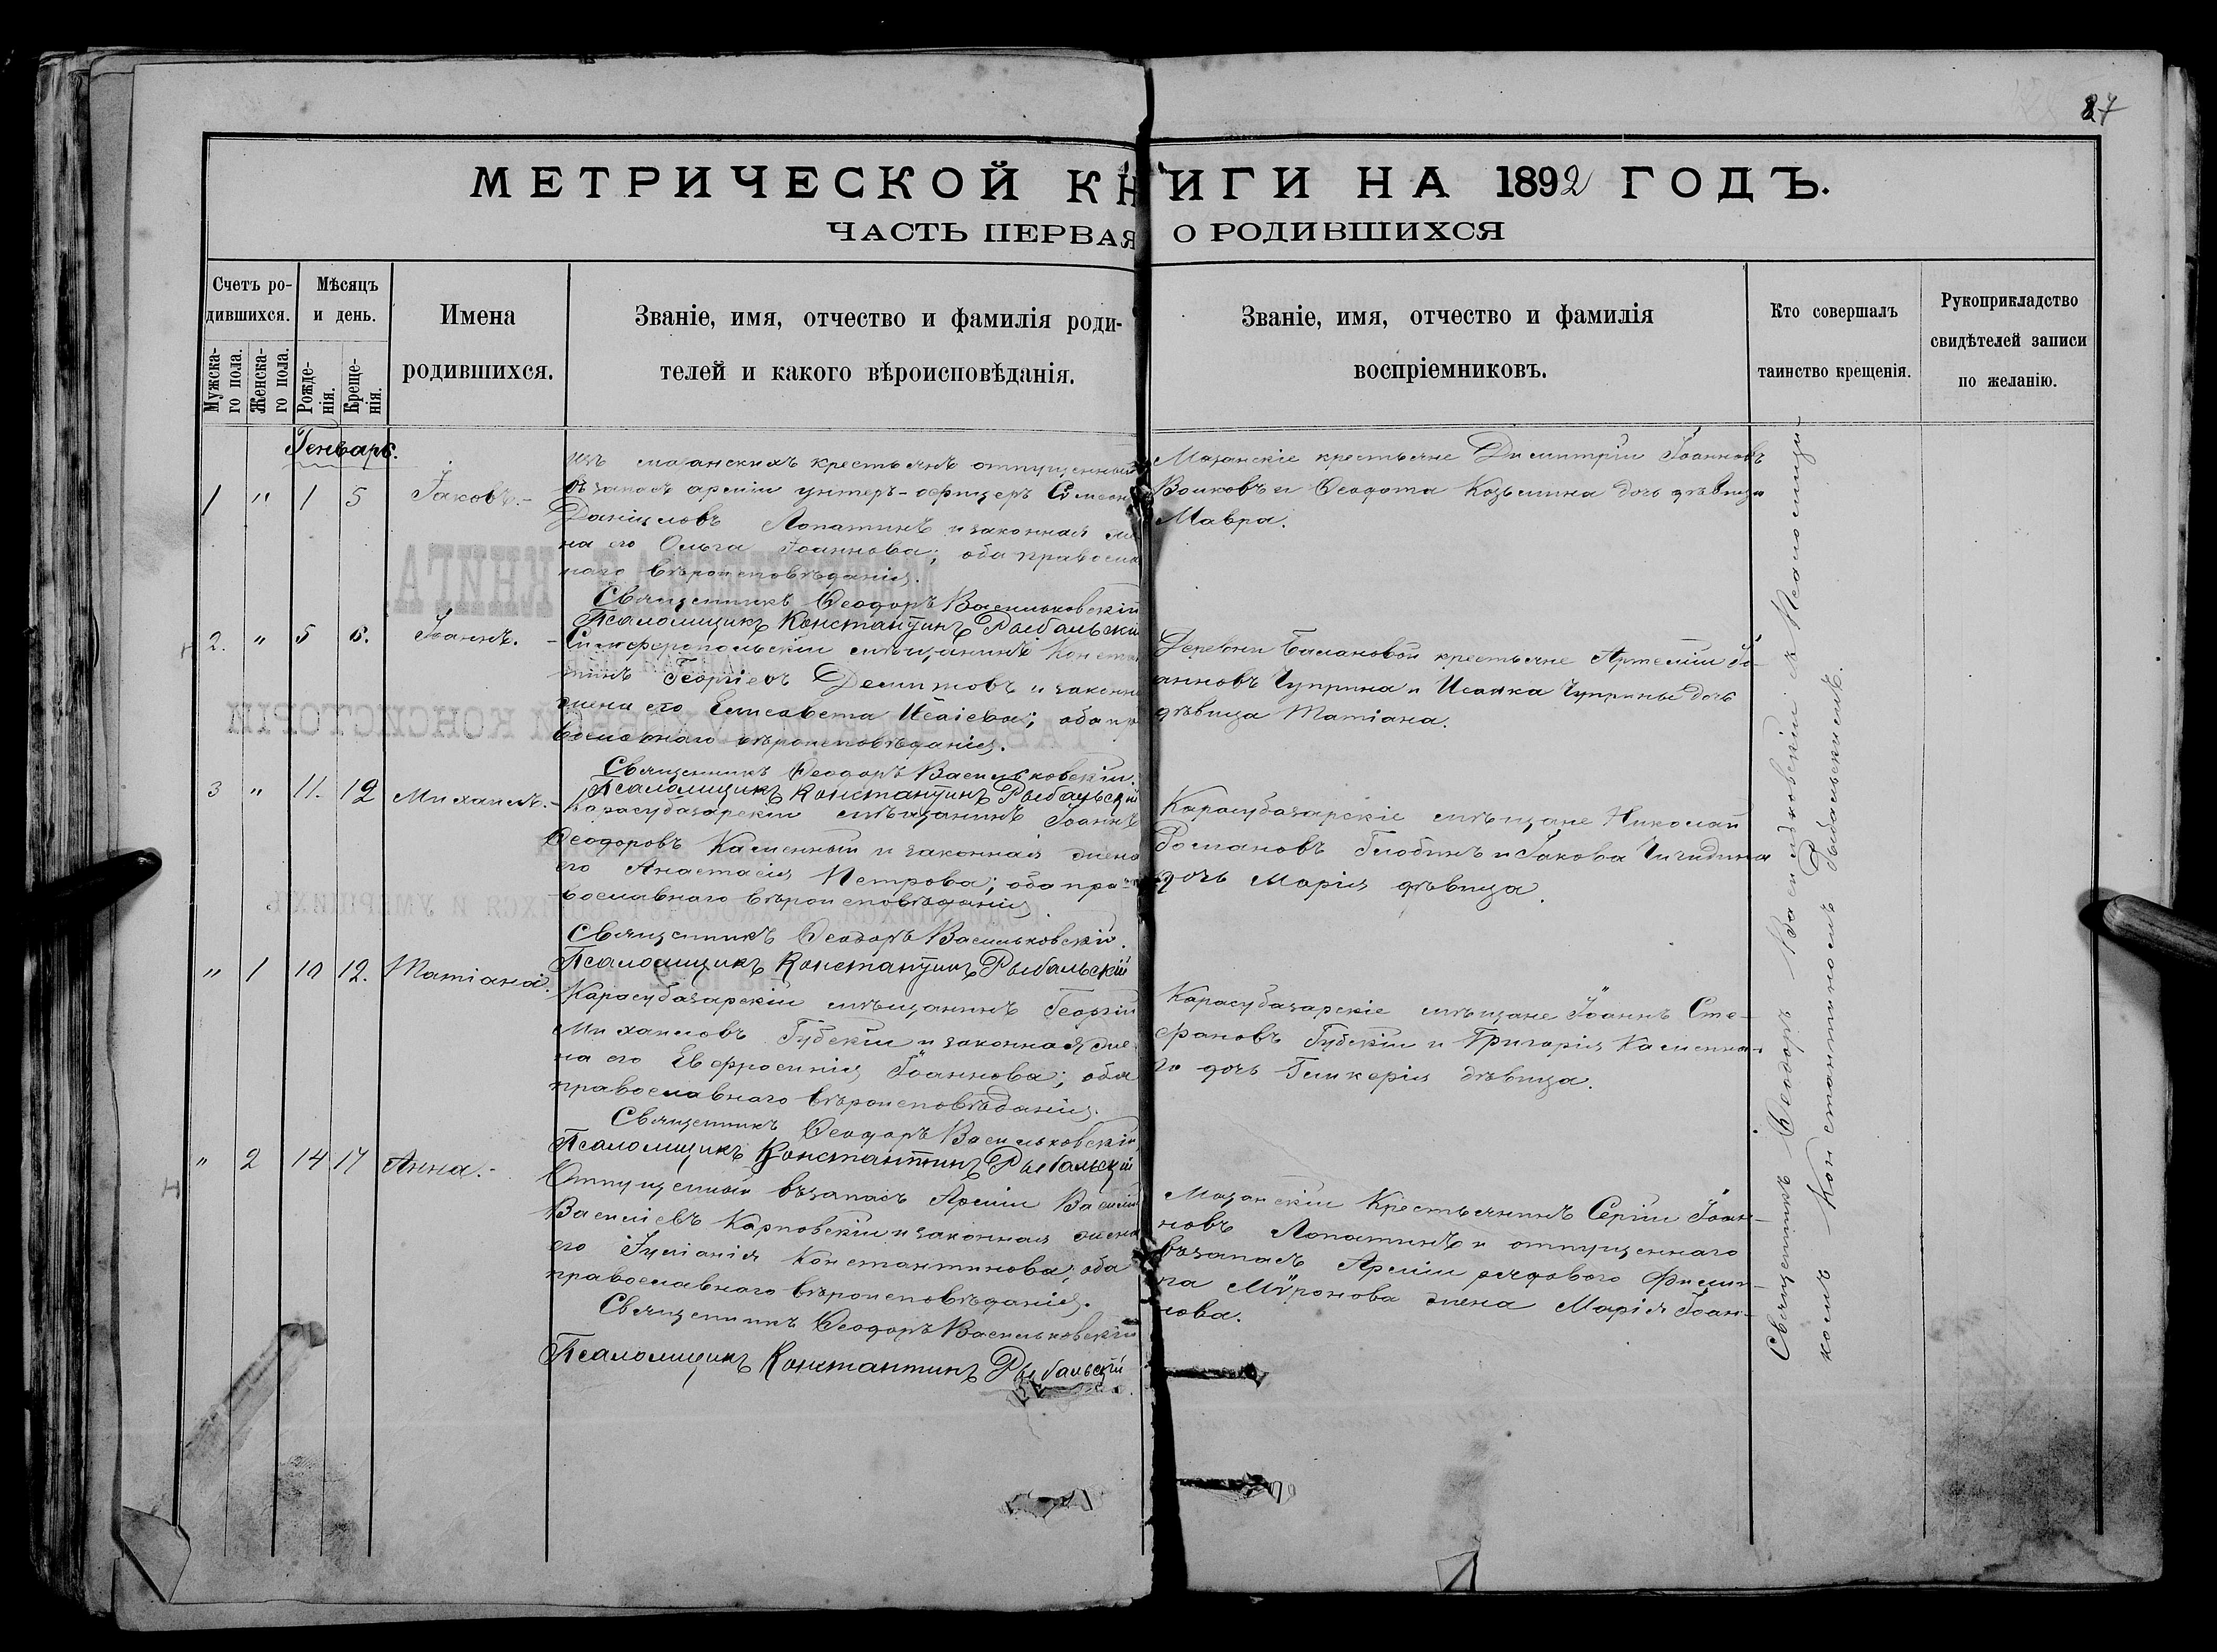 84
МЕТРИЧЕСКОЙ КНИГИ НА 1892 ГОДЪ.
ЧАСТЬ ПЕРВАЯ О РОДИВШИХСЯ
Счетъ родившихся.
Мужска-
го пола.
Женска-
го пола.
Мѣсяцъ
и день.
Рожде-
нія.
Креще-
нія.
Имена
родившихся.
Званіе, имя, отчество и фамилія роди-
телей и какого вѣроисповѣданія.
Званіе, имя, отчество и фамилія
воспріемниковъ.
Кто совершалъ
таинство крещенія.
Рукоприкладство
свидѣтелей записи
по желанію.
Генварь.
1 " 1 5 Іаковъ.-
Изъ мазанскихъ крестьянъ отпущенный
въ запасъ арміи унтеръ-офицеръ Симеонъ
Даниловъ Лопатинъ и законная же-
на его Ольга Іоаннова; оба православ
наго вѣроисповѣданія.
Священникъ Ѳеодоръ Васильковскій
Псаломщикъ Константинъ Рыбальскій
Мазанскіе крестьяне Димитрій Іоанновъ
Волковъ и Ѳеодота Козьмина дочь дѣвица
Мавра.
2. " 5 6. Іоаннъ.-
Симферопольскій мѣщанинъ Констан
тинъ Георгіевъ и законная
жена его Елисавета Исаіева; оба пра
вославнаго вѣроисповѣданія.
Священникъ Ѳеодоръ Васильковскій.
Псаломщикъ Константинъ Рыбальскій
Деревни крестьяне Артемій Іо-
анновъ Чуприна и Исаака Чуприны дочь
дѣвица Татіана.
3 " 11. 12 Михаилъ.-
Карасубазарскій мѣщанинъ Іоаннъ
Ѳеодоровъ Каменный и законная жена
его Анастасія Петрова; оба пра-
вославнаго вѣроисповѣданія.
Священникъ Ѳеодоръ Васильковскій.
Псаломщикъ Константинъ Рыбальскій
Карасубазарскіе мѣщане Николай
Романовъ и Іакова
дочь Марія дѣвица.
" 1 10 12. Татіана.
Карасубазарскій мѣщанинъ Георгій
Михаиловъ Губскій и законная же-
на его Евфросинія Іоаннова; оба
православнаго вѣроисповѣданія.
Священникъ Ѳеодоръ Васильковскій
Псаломщикъ Константинъ Рыбальскій
Карасубазарскіе мѣщане Іоаннъ Сте-
фановъ Губскій и Григорія Каменна-
го дочь Гликерія дѣвица.
" 2 14 17 Анна.-
Отпущенный въ запасъ Арміи Василій
Василіевъ Карповскій и законная жена
его Іуліанія Константинова; оба
православнаго вѣроисповѣданія.
Священникъ Ѳеодоръ Васильковскій
Псаломщикъ Константинъ Рыбальскій
Мазанскій Крестьянинъ Сергій Іоан-
новъ Лопатинъ и отпущеннаго
въ запасъ Арміи рядового Филип-
па Мѵронова жена Марія Іоан-
нова.
Священникъ Ѳеодоръ Васильковскій съ Псаломщи-
комъ Константиномъ Рыбальскимъ.